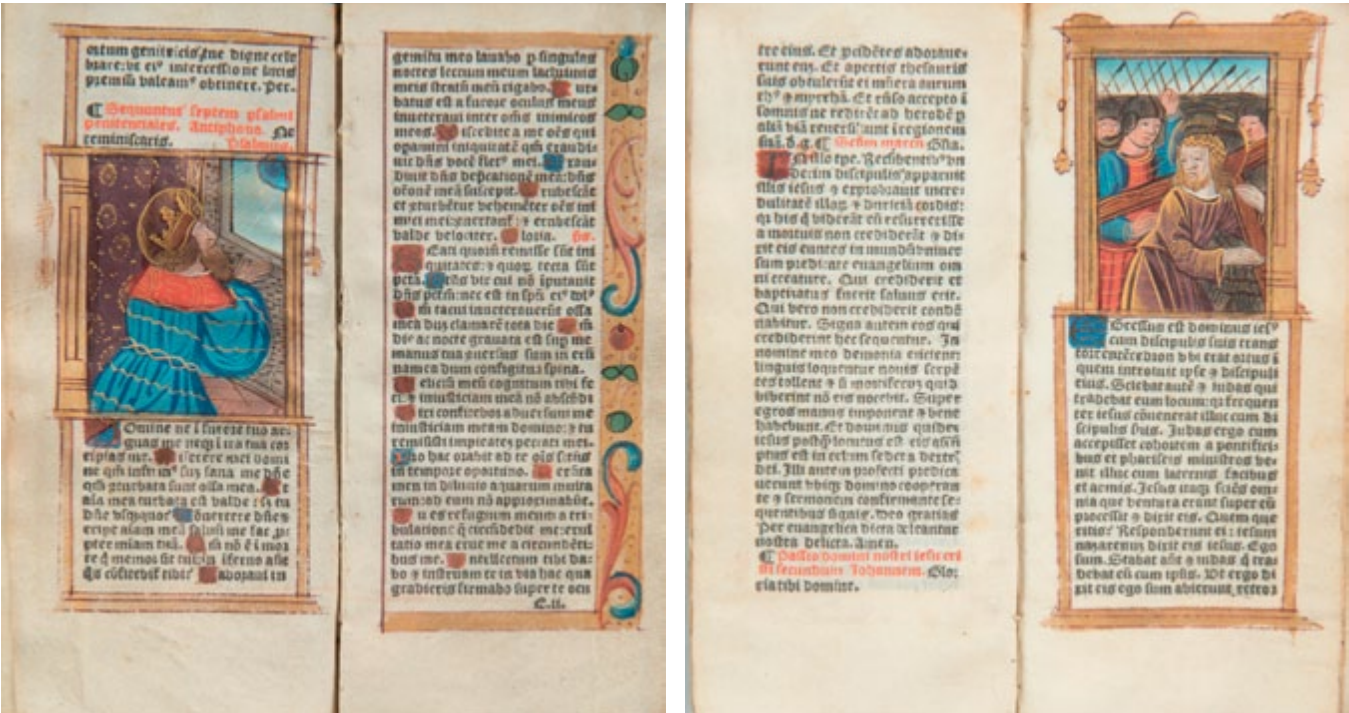 ortum genitricis tue digne cele
brare: vt eiꝰ intercessione lucis
premiũ valeamꝰ obtinere. Per.
¶ Sequuntur septem psalmi
penitenciales. Antiphona. Ne
reminiscaris. Psalmus.
Omine ne ĩ furore tuo ar-
guas me neqꝫ ĩ ira tua cor
ripias me. iserere mei domi
ne qm̃ infirmꝰ suꝫ sana me dñe
qm̃ cturbata sunt ossa mea.
aĩa mea turbata est valde: sꝫ tu
dñe vsquequo onuertere dñe ⁊
eripe aĩam meã saluũ me fac
pter miam tuã. m̃ nõ ẽ ĩ mor
te q̃ memor sit tui: in ĩferno aũt
q̃s cõfitebit tibi. aboraui in
gemitu meo lauabo p singulas
noctes lectum meum lachrimis
meis stratũ meũ rigabo. ur
batus est a furore oculus meus
inueteraui inter oẽs inimicos
meos. iscedite a me oẽs qui
opamini iniquitatẽ qm̃ exaudi
uit dñs vocẽ fletꝰ mei. xau
diuit dñs deprecationẽ meã: dñs
orõnẽ meã suscepit. rubescãt
et cturbẽtur vehemẽter oẽs ini
mici mei: ⁊ erubescãt
valde velociter. loria. ps.
Eati quorũ remisse sũt ini
quitates: ⁊ quoꝝ tecta sũt
pctã. tꝰ vir cui nõ ĩputauit
dñs pctm̃: nec est in spũ eiꝰ dolꝰ
m̃ tacui inueterauerũt ossa
mea dum clamarẽ tota die m̃
die ac nocte grauata est sup me
manus tua
namea dum configitur spina.
elictũ meũ cognitum tibi fe
ci: ⁊ iniusticiam meã nõ abscõdi
ixi confitebor aduersum me
iniusticiam meam domino: ⁊ tu
remisisti impietatẽ peccati mei.
ro hac orabit ad te oĩs sctũs
in tempore oportuno. erũta
men in diluuio aquarum multa
rum: ad eum nõ approximabũt.
u es refugium meum a tri
bulatione q̃ circũdedit me: exul
tatio mea erue me a circundãti-
bus me. ntellectum tibi da-
bo ⁊ instruam te in via hac qua
gradieris firmabo super te ocu
C.ii.
tre eius. Et pcidẽtes adoraue-
runt eũ. Et apertis thesauris
suis obtulerũt ei mũera aurum
thꝰ ⁊ myrrhã. Et rñso accepto ĩ
somnis ne redirẽt ad herodẽ p
aliã viã reuersi sunt ĩ regionem
suã. d. g. ¶ Scdm marcũ Gla.
N illo tpe. Recũbentibꝰ vn
decim discipulis apparuit
illis iesus ⁊ exprobrauit incre-
dulitatẽ illoꝝ ⁊ duriciã cordis:
qꝛ his q̃ viderãt eũ resurrexisse
a mortuis non crediderũt ⁊ di-
xit eis euntes in mundũ vniuer
sum predicate euangelium om
ni creature. Qui crediderit et
baptizatus fuerit saluus erit.
Qui vero non crediderit condẽ
nabitur. Signa autem eos qui
crediderint hec sequentur. In
nomine meo demonia eiicient:
linguis loquentur nouis: serpẽ
tes tollent ⁊ si mortiferꝝ quid
biberint nõ eis nocebit. Super
egros manus imponent ⁊ bene
habebunt. Et dominus quidez
iesus postq̃ locutus est eis assũ
ptus est in celum sedet a dextris
dei. Illi autem profecti predica
uerunt vbiqꝫ domino cooperan
te ⁊ sermonem confirmante se-
quentibus signis. Deo gratias
Per euangelica dicta deleantur
nostra delicta. Amen.
¶ Passio domini nostri iesu cri
sti secundum Johannem. Glo-
ria tibi domine.
Gressus est dominus iesꝰ
cum discipulis suis trans
torrentẽ cedron vbi erat ortus ĩ
quem introiuit ipse ⁊ discipuli
eius. Sciebat autẽ ⁊ iudas qui
tradebat eum locum: qꝛ frequen
ter iesus cõuenerat illuc cum di
scipulis suis. Judas ergo cum
accepisset cohortem a pontifici-
bus et phariseis ministros ve-
nit illuc cum laternis facibus
et armis. Jesus itaqꝫ sciẽs om-
nia que ventura erant super eũ
processit ⁊ dixit eis. Quem que
ritis? Responderunt ei: iesum
nazarenum dixit eis iesus. Ego
sum. Stabat aũt ⁊ iudas q̃ tra
debat eũ cum ipsis. Vt ergo di
xit eis ego sum abierunt retror